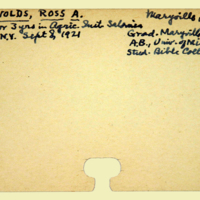 VOLDS, ROSS A.
Maryville
or 3 yrs in Agric. Inst Salonica
N.Y. Sept 8, 1921
Grad. Maryvill
A.B., Univ. of Mi
Stud. Bible Coll